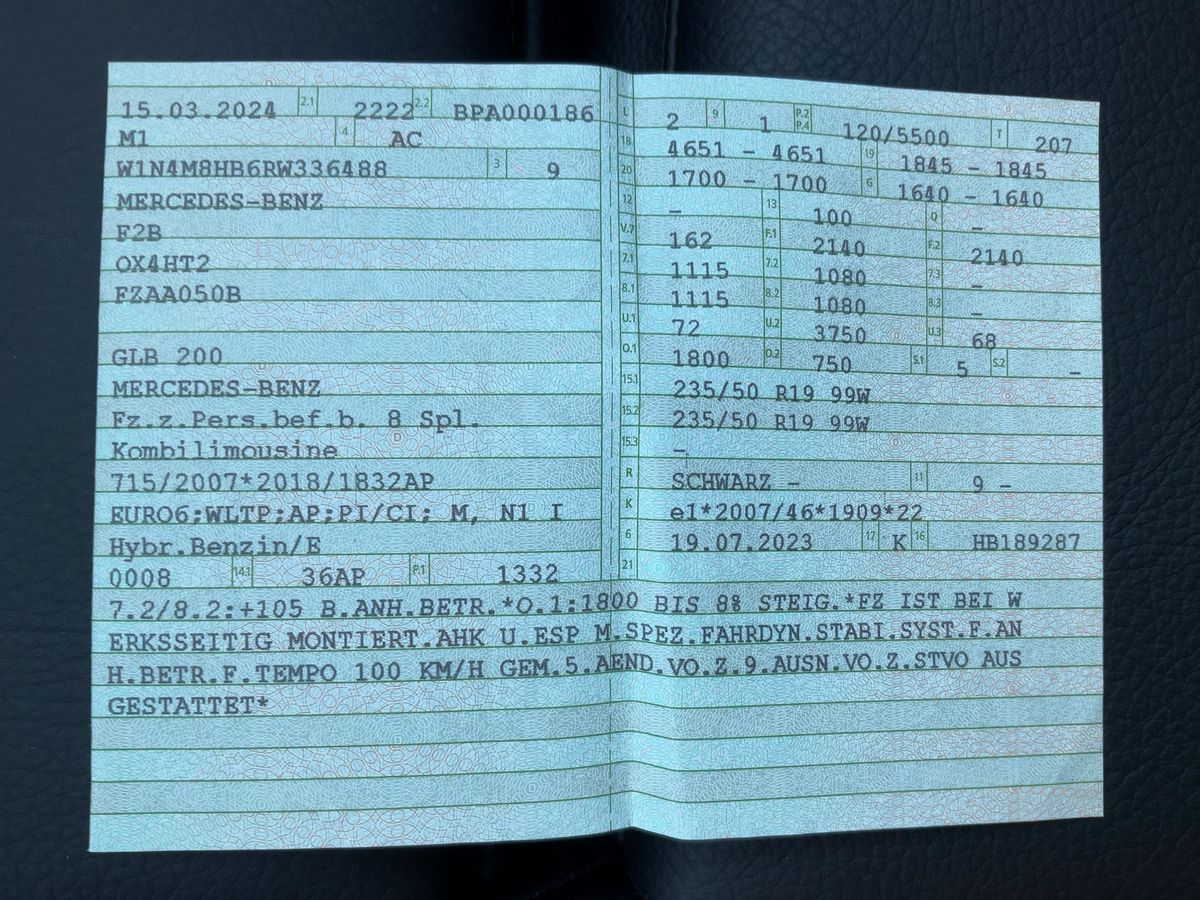 15.03.2024 2.1 2222 2.2 BPA000186
M1 4 AC
W1N4M8HB6RW336488 3 9
MERCEDES-BENZ
F2B
OX4HT2
FZAA050B
GLB 200
MERCEDES-BENZ
Fz.z.Pers.bef.b. 8 Spl.
Kombilimousine
715/2007*2018/1832AP
EURO6;WLTP;AP;PI/CI; M, N1 I
Hybr.Benzin/E
0008 14.1 36AP P.1 1332
L 2 9 1 P.2 P.4 120/5500 T 207
18 4651 - 4651 19 1845 - 1845
20 1700 - 1700 G 1640 - 1640
12 - 13 100 Q -
V.7 162 F.1 2140 F.2 2140
7.1 1115 7.2 1080 7.3 -
8.1 1115 8.2 1080 8.3 -
U.1 72 U.2 3750 U.3 68
O.1 1800 O.2 750 S.1 5 S.2 -
15.1 235/50 R19 99W
15.2 235/50 R19 99W
15.3 -
R SCHWARZ - 11 9 -
K e1*2007/46*1909*22
6 19.07.2023 17 K 16 HB189287
21
7.2/8.2:+105 B.ANH.BETR.*O.1:1800 BIS 8% STEIG.*FZ IST BEI W
ERKSSEITIG MONTIERT.AHK U.ESP M.SPEZ.FAHRDYN.STABI.SYST.F.AN
H.BETR.F.TEMPO 100 KM/H GEM.5.AEND.VO.Z.9.AUSN.VO.Z.STVO AUS
GESTATTET*